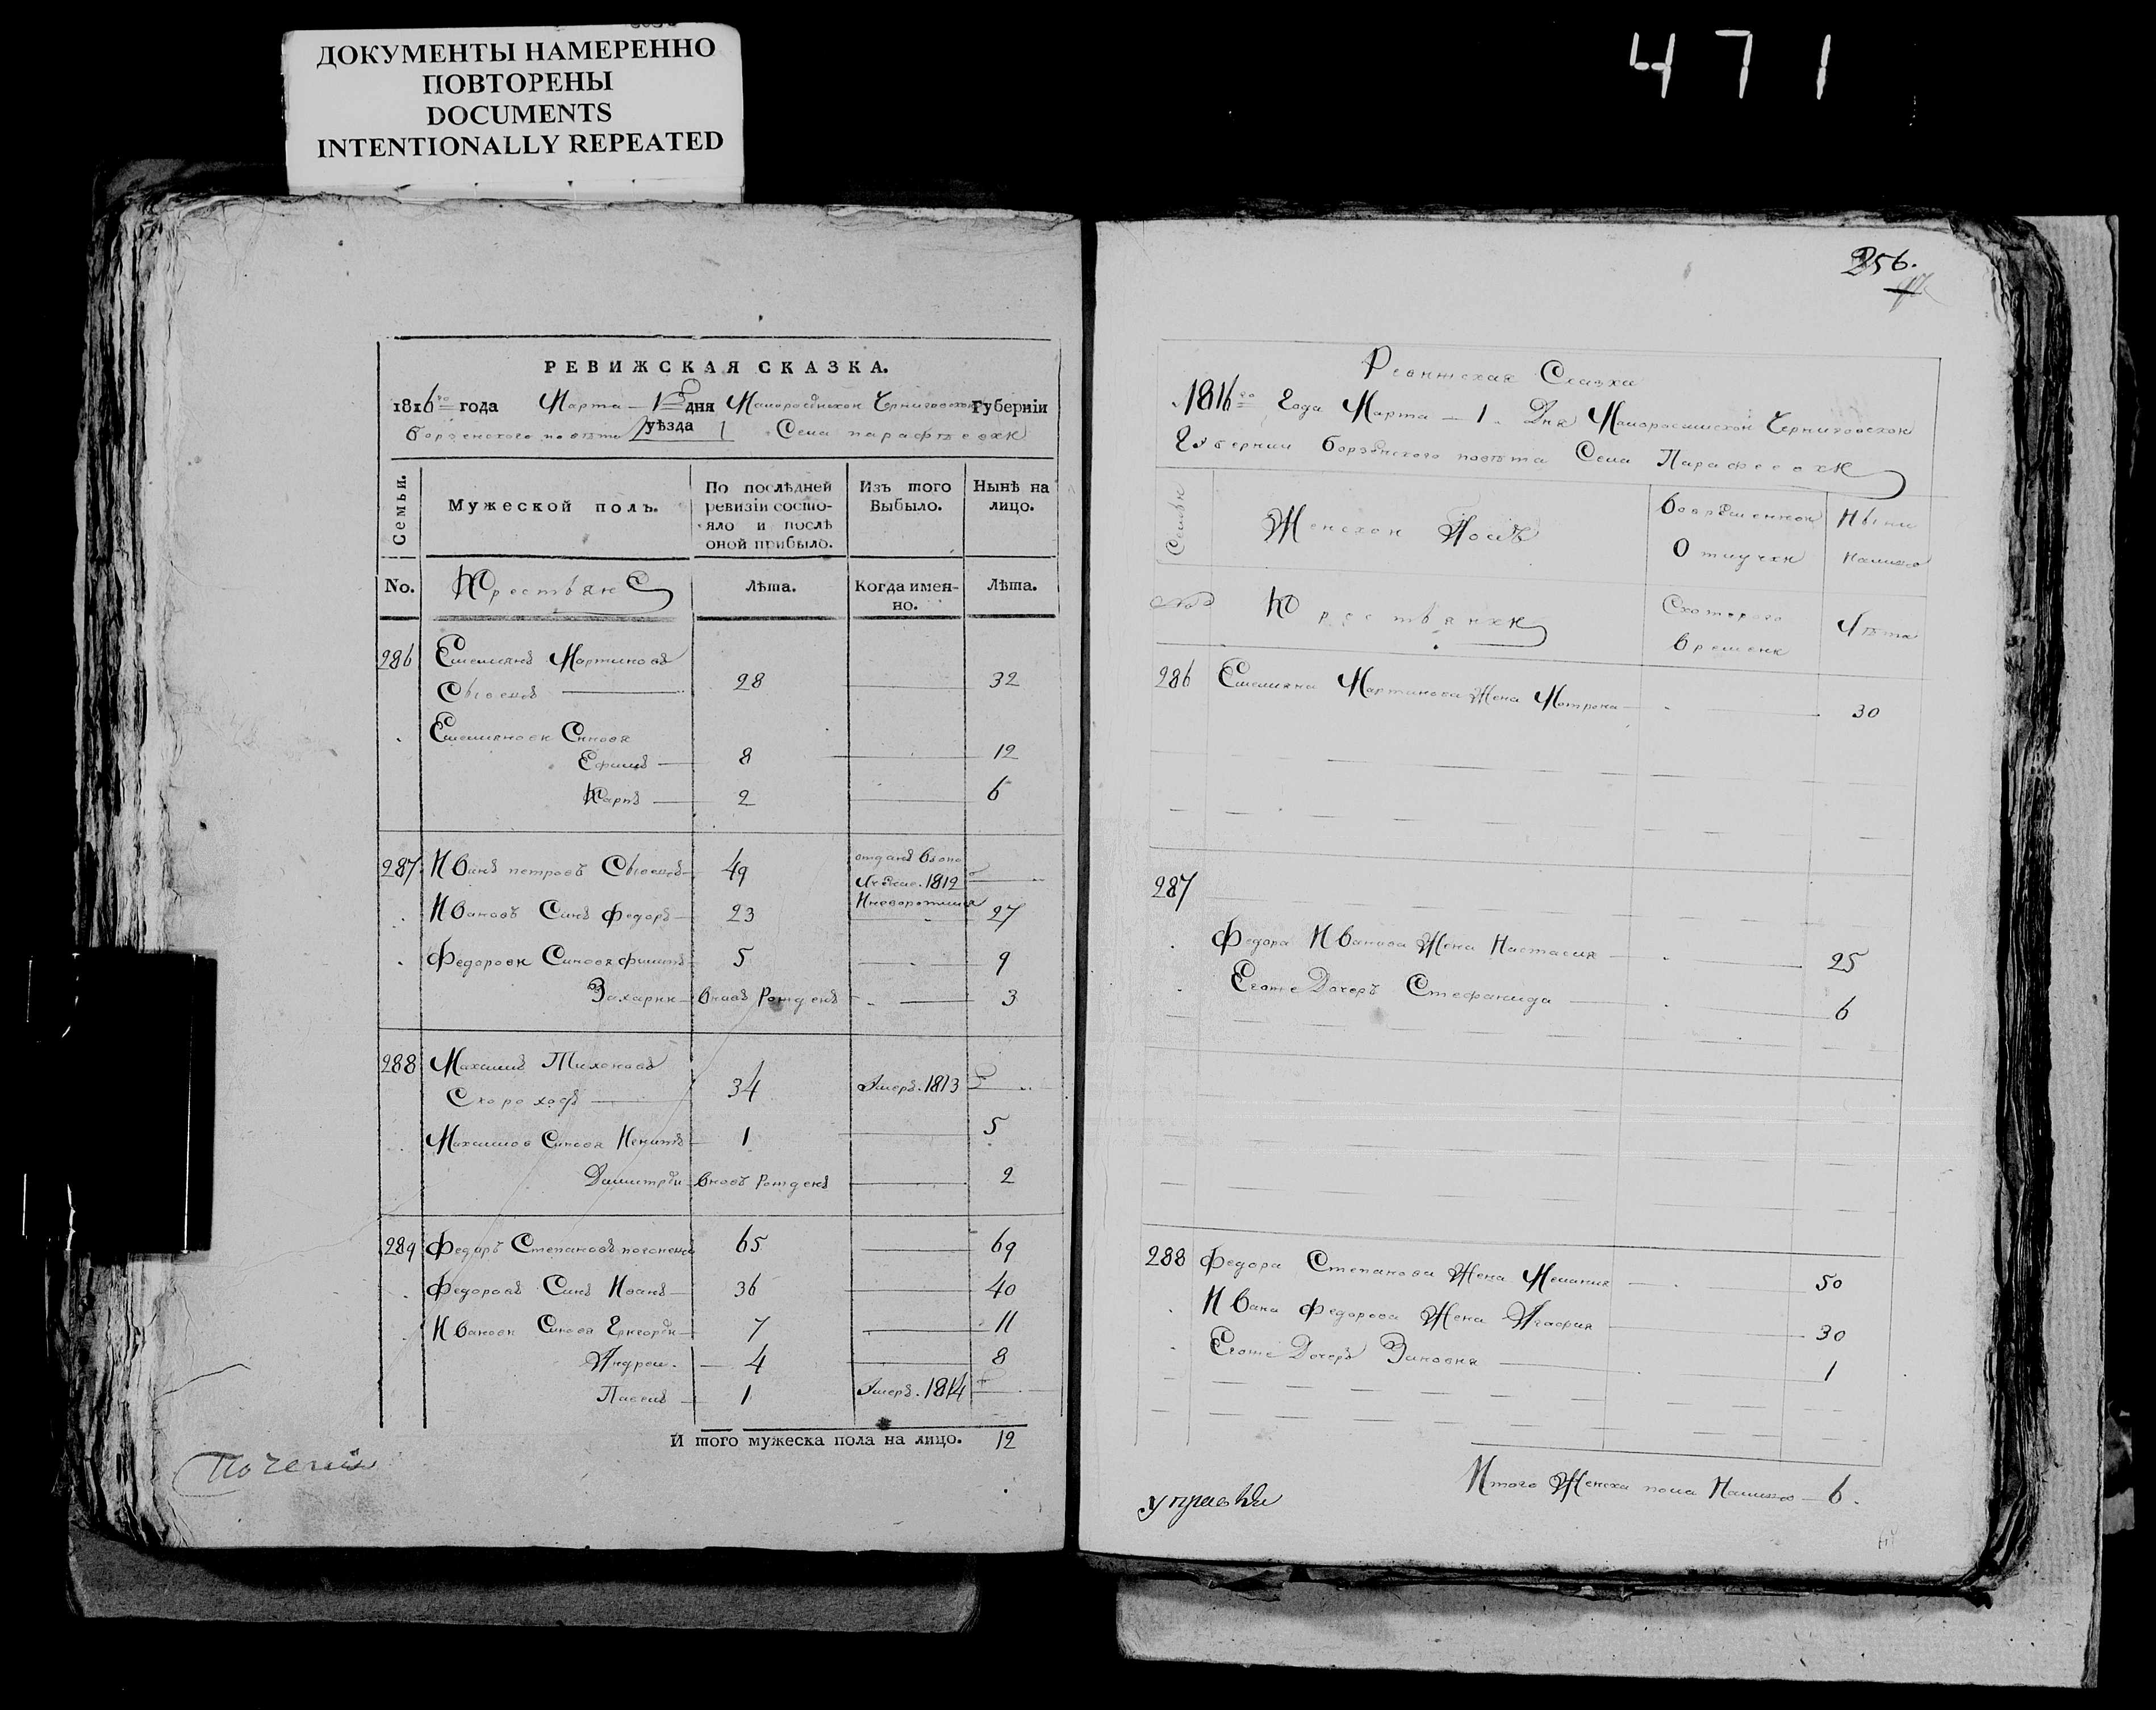 ДОКУМЕНТЫ НАМЕРЕННО
ПОВТОРЕНЫ
DOCUMENTS
INTENTIONALLY REPEATED
471
РЕВИЖСКАЯ СКАЗКА.
1816го года Марта 1го дня Малоросійской Черниговской Губернїи
борзенского повѣта уѣзда Села парафѣевки
Семьи.
Мужеской полъ.
По послѣдней
ревизїи состо-
яло и послѣ
оной прибыло.
Изъ того
Выбыло.
Нынѣ на
лицо.
No.
Крестьяне
Лѣта.
Когда имен-
но.
Лѣта.
286 Емелиянъ Мартиновъ
28 32
Емелияновы Синовя
Ефимъ 8 12
Карпъ 2 6
287 Иванъ петровъ 49 отданъ
1812
Ивановъ Синъ федоръ 23 27
федоровы Синовя филипъ 5 9
Захарии вновь рожденъ 3
288 Максимъ Тихоновъ
Скороходъ 34 Умеръ. 1813
Максимов Синовя Никита 1 5
Димитрїи вновь рожденъ 2
289 федоръ Степановъ 65 69
федоровъ Синъ Иванъ 36 40
Ивановы Синовя Григорїи 7 11
Андреи 4 8
Павелъ 1 Умеръ. 1814
И того мужеска пола на лицо. 12
256.
Ревижская Сказка
1816го Года Марта 1. Дня Малоросийской Черниговской
Губернии борзенского повѣта Села Парафеевки
Семьи
Женской Полъ
Во временной
Отлучки
Ныне
налицо
Крестьянки
С которого
времени
Лѣта
286 Емелияна Мартинова Жена Мотрона 30
287
федора Иванова Жена Настасия 25
Егоже Дочеръ Стефанида 6
288 федора Степанова Жена Мелания 50
Ивана федорова Жена Агафия 30
Егоже Дочеръ Зиновия 1
Итого Женска пола Налицо 6.